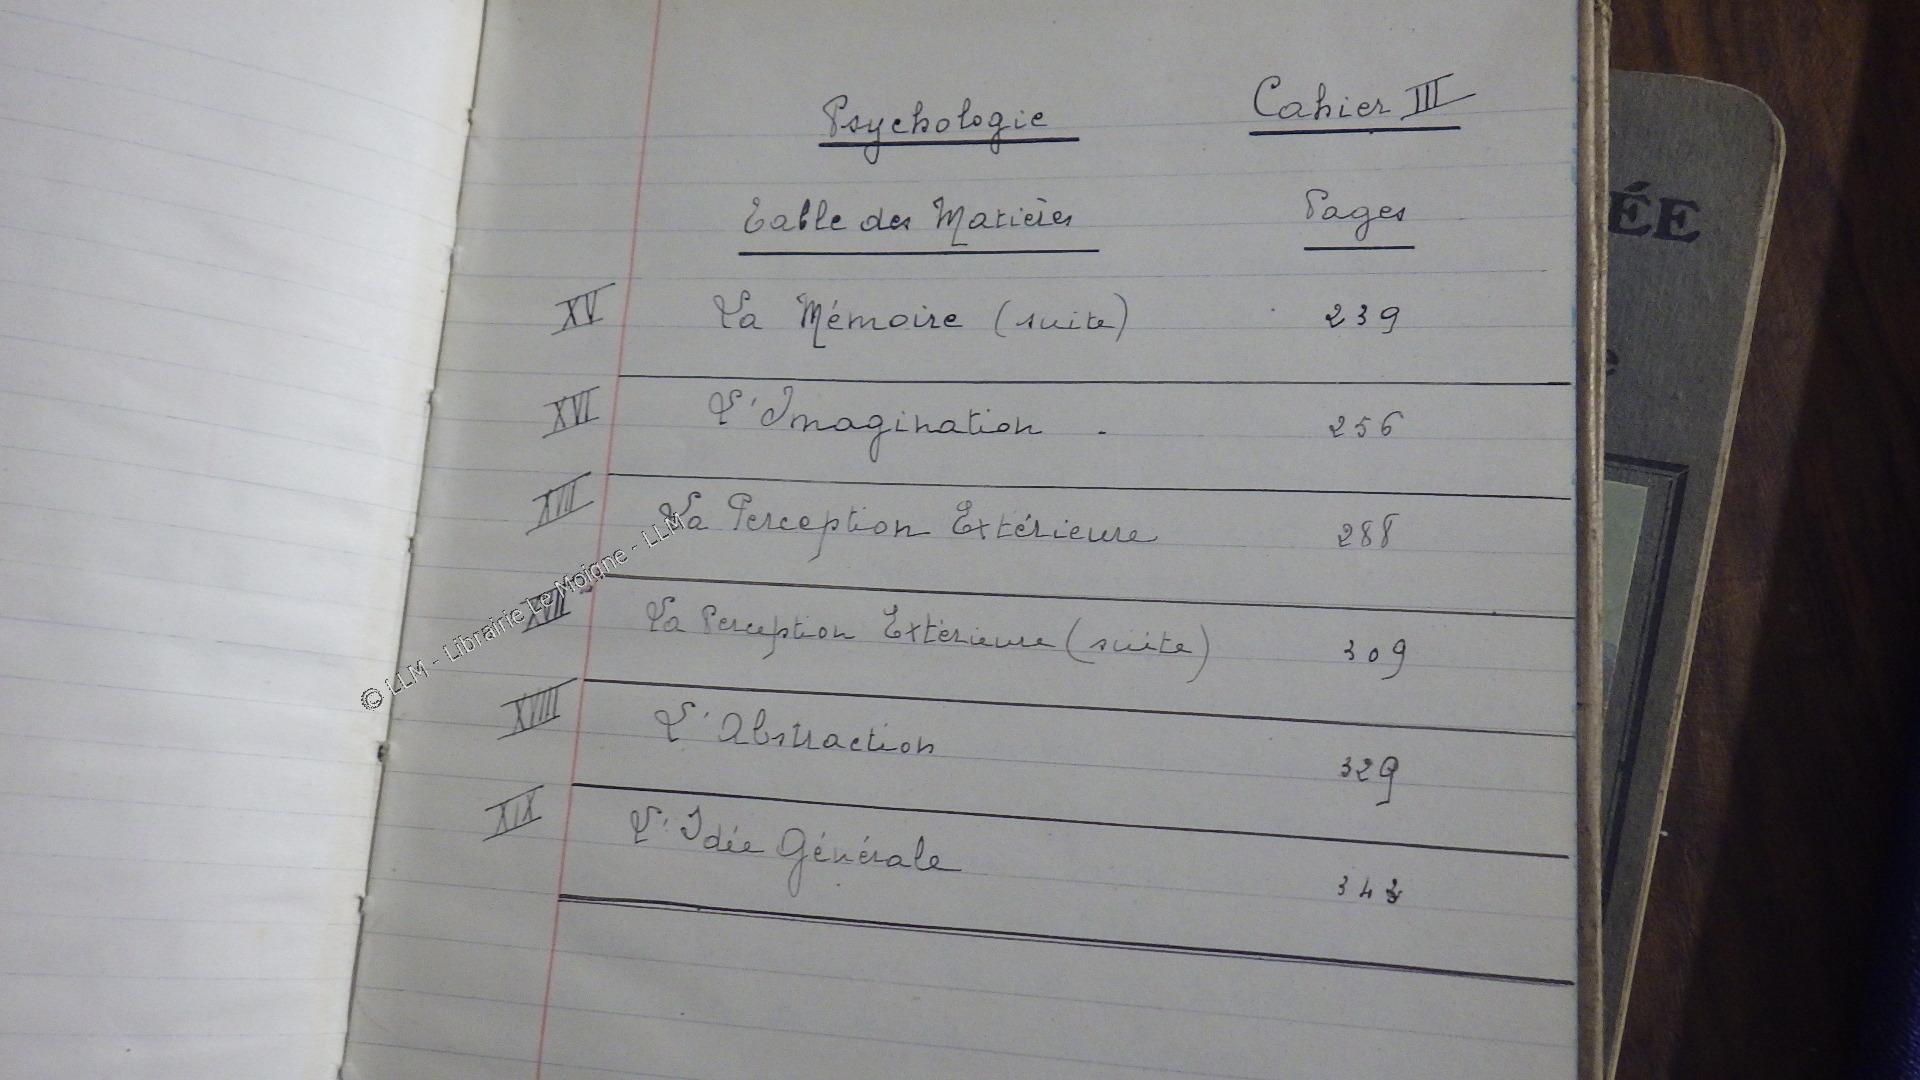 Psychologie Cahier III
Table des Matières Pages
XV La Mémoire (suite) 239
XVI L'Imagination . 256
XVII La Perception Extérieure 288
XVII La Perception Extérieure (suite) 309
XVIII L'Abstraction 329
XIX L'Idée Générale 343
© LLM - Librairie Le Moigne - LLM
ÉE